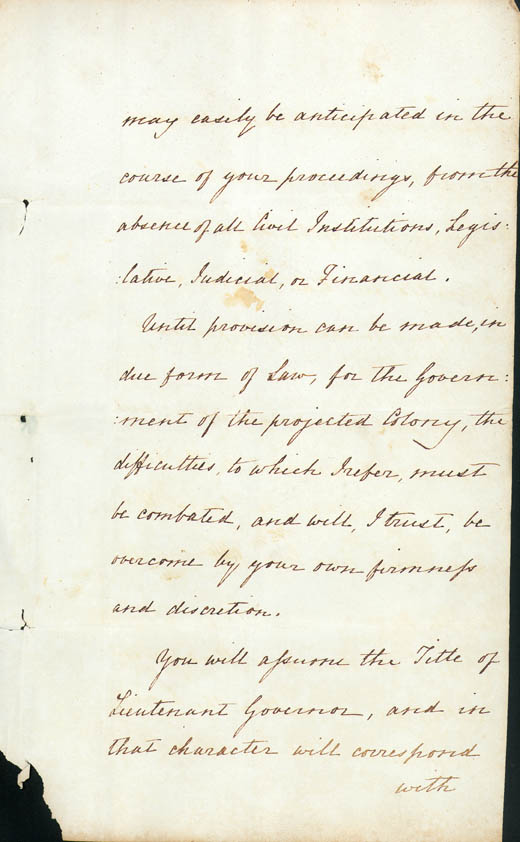 may easily be anticipated in the
course of your proceedings, from the
absence of all Civil Institutions, Legis:
:lative, Judicial, or Financial.
Until provision can be made, in
due form of Law, for the Govern:
:ment of the projected Colony, the
difficulties, to which I refer, must
be combated, and will, I trust, be
overcome by your own firmneſs
and discretion.
You will aſsume the Title of
Lieutenant Governor, and in
that character will correspond
with